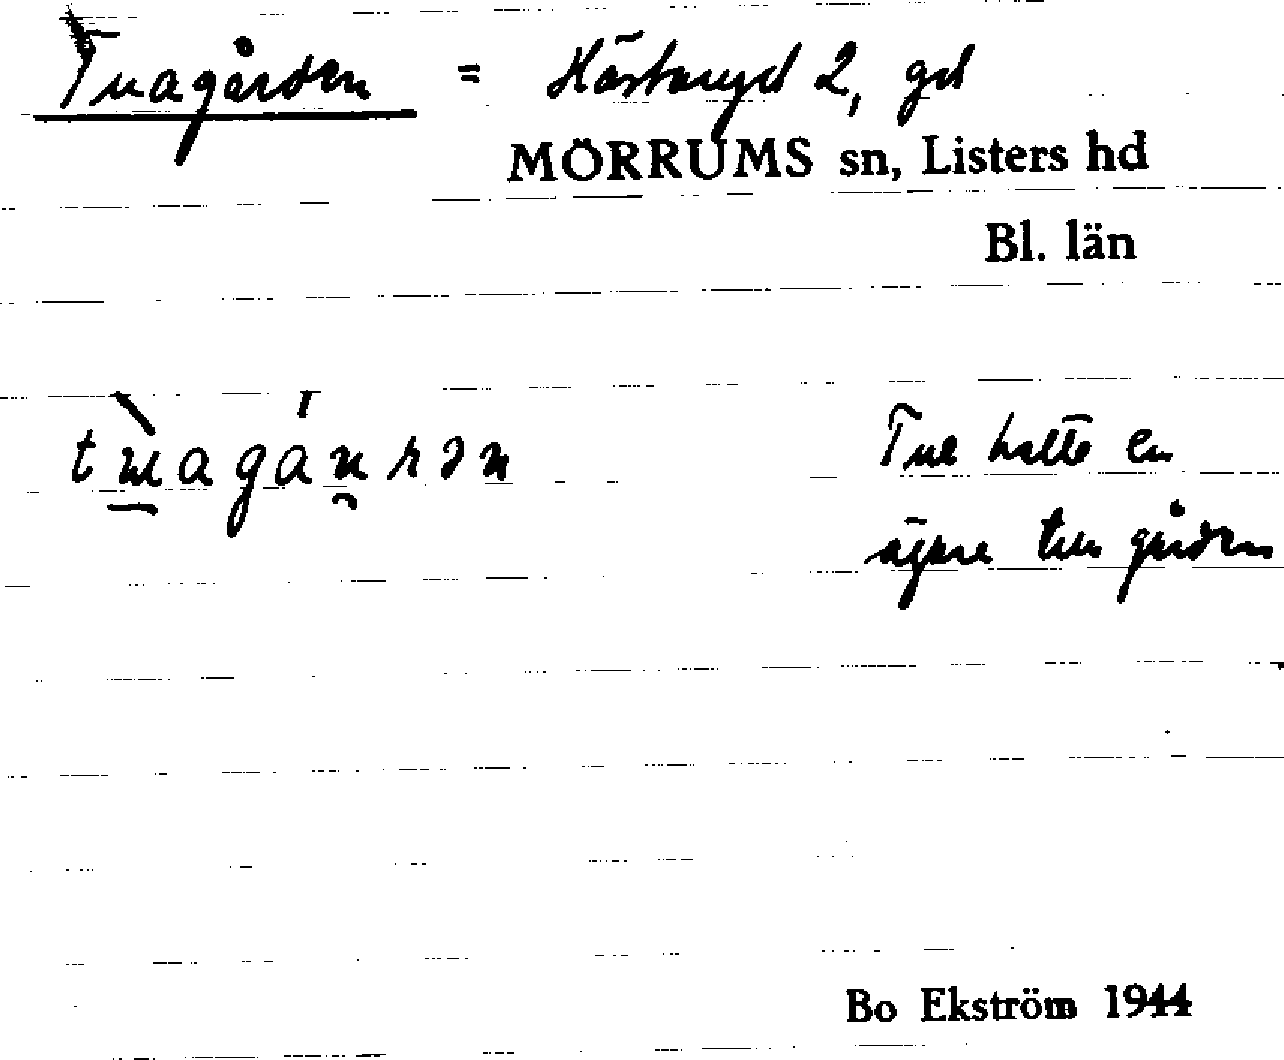 Tuagården = Hästaryd 2, gd
MÖRRUMS sn, Listers hd
Bl. län
Tue hette en
ägare till gården
Bo Ekström 1944